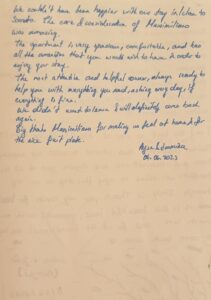 We couldn't have been happier with our stay in
The care & consideration of Massimiliano
was
The apartment is very spacious, comfortable, and has
all the amenities that you would wish to have in order to
enjoy your stay.
The most attentive and helpful owner, always ready to
help you with anything you need, asking every day, if
everything is fine.
We didn't want to leave & will definitely come back
again.
Big thanks Massimiliano for making us feel at home & for
the nice fruit plate.